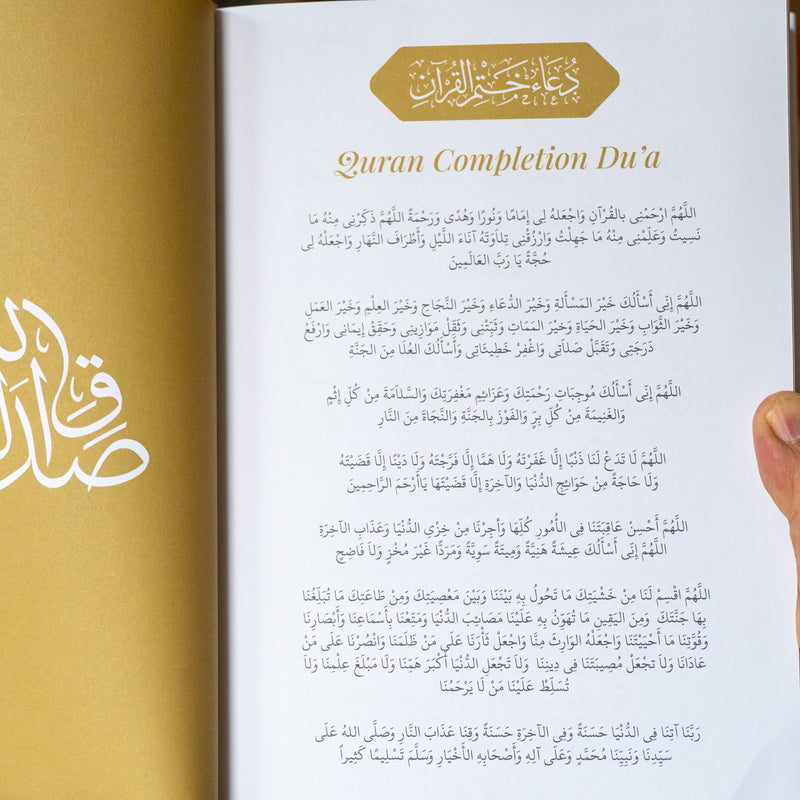 دُعَاء خَتْمِ القُرْآنِ
Quran Completion Du'a
اللَّهُمَّ ارْحَمْنِى بالقُرْآنِ وَاجْعَلهُ لِى إِمَامًا وَنُورًا وَهُدًى وَرَحْمَةً اللَّهُمَّ ذَكِّرْنِى مِنْهُ مَا
نَسِيتُ وَعَلِّمْنِى مِنْهُ مَا جَهِلْتُ وَارْزُقْنِى تِلاَوَتَهُ آنَاءَ اللَّيْلِ وَأَطْرَافَ النَّهَارِ وَاجْعَلْهُ لِى
حُجَّةً يَا رَبَّ العَالَمِينَ
اللَّهُمَّ إِنِّى أَسْأَلُكَ خَيْرَ المَسْأَلةِ وَخَيْرَ الدُّعَاءِ وَخَيْرَ النَّجَاحِ وَخَيْرَ العِلْمِ وَخَيْرَ العَمَلِ
وَخَيْرَ الثَّوَابِ وَخَيْرَ الحَيَاةِ وَخيْرَ المَمَاتِ وَثَبِّتْنِى وَثَقِّلْ مَوَازِينِى وَحَقِّقْ إِيمَانِى وَارْفَعْ
دَرَجَتِى وَتَقَبَّلْ صَلاَتِى وَاغْفِرْ خَطِيئَاتِى وَأَسْأَلُكَ العُلَا مِنَ الجَنَّةِ
اللَّهُمَّ إِنِّى أَسْأَلُكَ مُوجِبَاتِ رَحْمَتِكَ وَعَزَائِمِ مَغْفِرَتِكَ وَالسَّلاَمَةَ مِنْ كُلِّ إِثْمٍ
وَالغَنِيمَةَ مِنْ كُلِّ بِرٍّ وَالفَوْزَ بِالجَنَّةِ وَالنَّجَاةَ مِنَ النَّارِ
اللَّهُمَّ لَا تَدَعْ لَنَا ذَنْبًا إِلَّا غَفَرْتَهُ وَلَا هَمًّا إِلَّا فَرَّجْتَهُ وَلَا دَيْنًا إِلَّا قَضَيْتَهُ
وَلَا حَاجَةً مِنْ حَوَائِجِ الدُّنْيَا وَالآخِرَةِ إِلَّا قَضَيْتَهَا يَاأَرْحَمَ الرَّاحِمِينَ
اللَّهُمَّ أَحْسِنْ عَاقِبَتَنَا فِى الأُمُورِ كُلِّهَا وَأَجِرْنَا مِنْ خِزْيِ الدُّنْيَا وَعَذَابِ الآخِرَةِ
اللَّهُمَّ إِنِّى أَسْأَلُكَ عِيشَةً هَنِيَّةً وَمِيتَةً سَوِيَّةً وَمَرَدًّا غَيْرَ مُخْزٍ وَلاَ فَاضِحٍ
اللَّهُمَّ اقْسِمْ لَنَا مِنْ خَشْيَتِكَ مَا تَحُولُ بِهِ بَيْنَنَا وَبَيْنَ مَعْصِيَتِكَ وَمِنْ طَاعَتِكَ مَا تُبَلِّغُنَا
بِهَا جَنَّتَكَ وَمِنَ اليَقِينِ مَا تُهَوِّنُ بِهِ عَلَيْنَا مَصَائِبَ الدُّنْيَا وَمَتِّعْنَا بِأَسْمَاعِنَا وَأَبْصَارِنَا
وَقُوَّتِنَا مَا أَحْيَيْتَنَا وَاجْعَلْهُ الوَارِثَ مِنَّا وَاجْعَلْ ثَأْرَنَا عَلَى مَنْ ظَلَمَنَا وَانْصُرْنَا عَلَى مَنْ
عَادَانَا وَلاَ تجْعَلْ مُصِيبَتَنَا فِى دِينِنَا وَلاَ تَجْعَلِ الدُّنْيَا أَكْبَرَ هَمِّنَا وَلَا مَبْلَغَ عِلْمِنَا وَلاَ
تُسَلِّطْ عَلَيْنَا مَنْ لَا يَرْحَمُنَا
رَبَّنَا آتِنَا فِى الدُّنْيَا حَسَنَةً وَفِى الآخِرَةِ حَسَنَةً وَقِنَا عَذَابَ النَّارِ وَصَلَّى اللهُ عَلَى
سَيِّدِنَا وَنَبِيِّنَا مُحَمَّدٍ وَعَلَى آلِهِ وَأَصْحَابِهِ الأَخْيَارِ وَسَلَّمَ تَسْلِيمًا كَثِيرًا
صَدَقَ